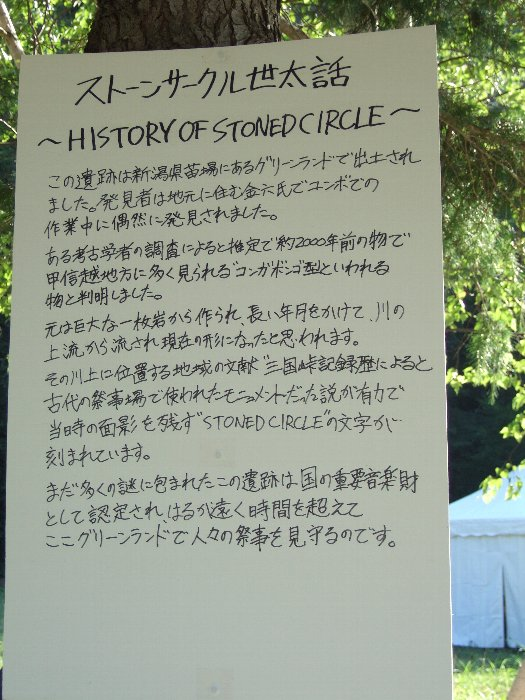 ストーンサークル世太話
～HISTORY OF STONED CIRCLE～
この遺跡は新潟県苗場にあるグリーンランドで出土され
ました。発見者は地元に住む金六氏でユンボでの
作業中に偶然に発見されました。
ある考古学者の調査によると推定で約2000年前の物で
甲信越地方に多く見られる"コンガボンゴ型"といわれる
物と判明しました。
元は巨大な一枚岩から作られ、長い年月をかけて、川の
上流から流され現在の形になったと思われます。
その川上に位置する地域の文献"三国峠記録歴によると
古代の祭事場で使われたモニュメントだった説が有力で
当時の面影を残す"STONED CIRCLE"の文字が
刻まれています。
まだ多くの謎に包まれたこの遺跡は国の重要音楽財
として認定され、はるか遠く時間を超えて
ここグリーンランドで人々の祭事を見守るのです。